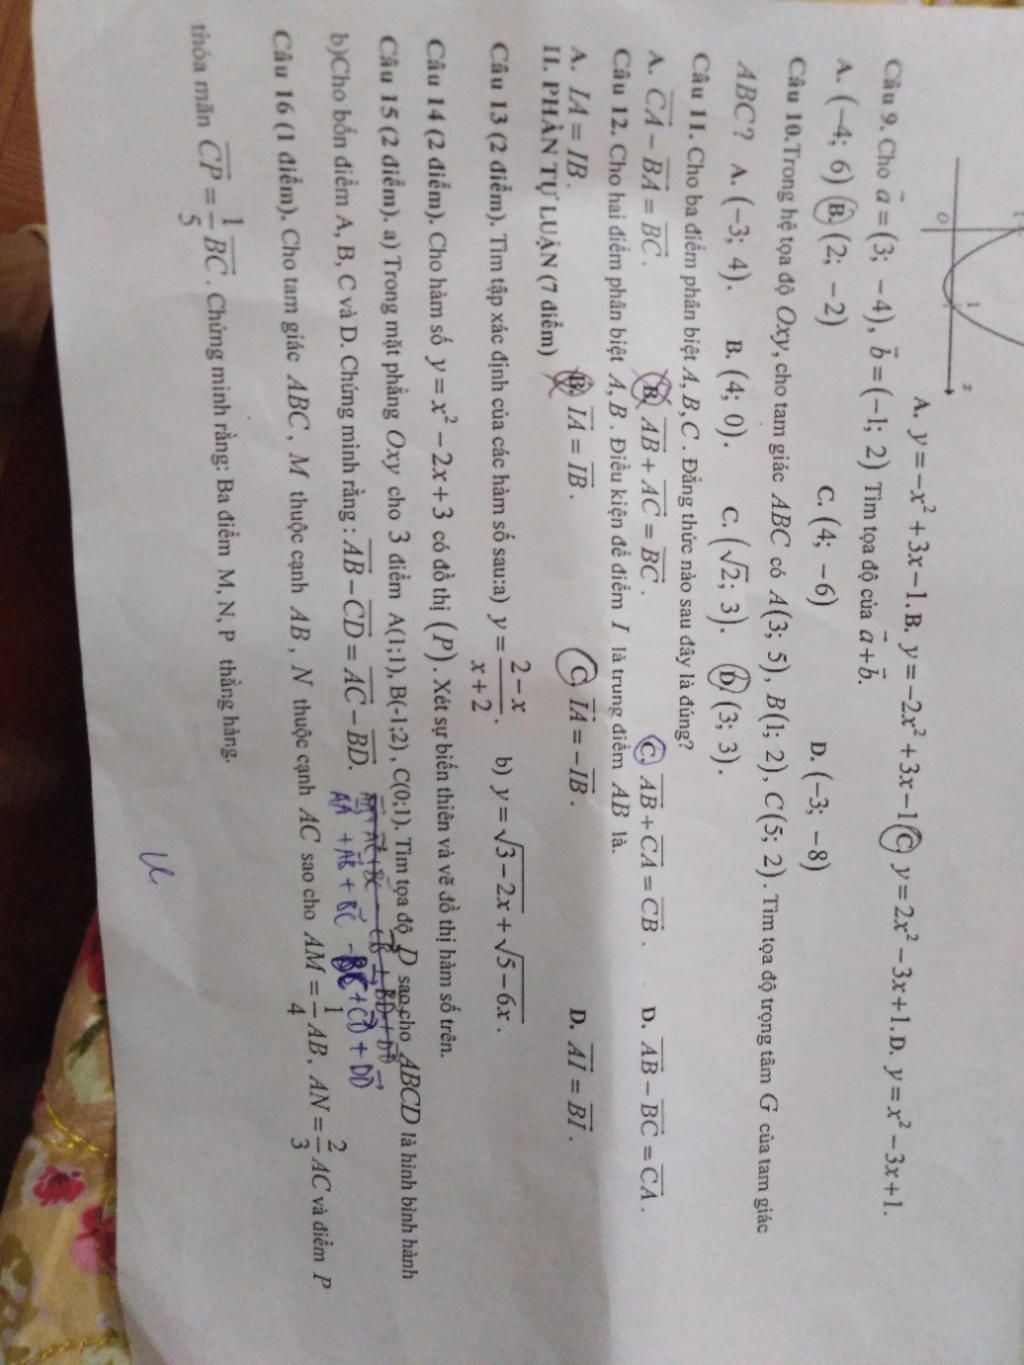 O 1 x
A. y = −x² + 3x − 1. B. y = −2x² + 3x − 1 C. y = 2x² − 3x + 1. D. y = x² − 3x + 1.
Câu 9. Cho a⃗ = (3; −4), b⃗ = (−1; 2) Tìm tọa độ của a⃗ + b⃗.
A. (−4; 6) B. (2; −2) C. (4; −6) D. (−3; −8)
Câu 10. Trong hệ tọa độ Oxy, cho tam giác ABC có A(3; 5), B(1; 2), C(5; 2). Tìm tọa độ trọng tâm G của tam giác
ABC? A. (−3; 4). B. (4; 0). C. (√2; 3). D. (3; 3).
Câu 11. Cho ba điểm phân biệt A, B, C. Đẳng thức nào sau đây là đúng?
A. CA − BA = BC. B. AB + AC = BC. C. AB + CA = CB. D. AB − BC = CA.
Câu 12. Cho hai điểm phân biệt A, B. Điều kiện để điểm I là trung điểm AB là.
A. IA = IB. B. IA = IB. C. IA = −IB. D. AI = BI.
II. PHẦN TỰ LUẬN (7 điểm)
Câu 13 (2 điểm). Tìm tập xác định của các hàm số sau:a) y = (2−x)/(x+2). b) y = √(3−2x) + √(5−6x).
Câu 14 (2 điểm). Cho hàm số y = x² − 2x + 3 có đồ thị (P). Xét sự biến thiên và vẽ đồ thị hàm số trên.
Câu 15 (2 điểm). a) Trong mặt phẳng Oxy cho 3 điểm A(1;1), B(-1;2), C(0;1). Tìm tọa độ D sao cho ABCD là hình bình hành
b)Cho bốn điểm A, B, C và D. Chứng minh rằng : AB − CD = AC − BD.
AA + AB + BC − BC + CD + DD
Câu 16 (1 điểm). Cho tam giác ABC, M thuộc cạnh AB, N thuộc cạnh AC sao cho AM = 1/4 AB, AN = 2/3 AC và điểm P
thỏa mãn CP = 1/5 BC. Chứng minh rằng: Ba điểm M, N, P thẳng hàng.